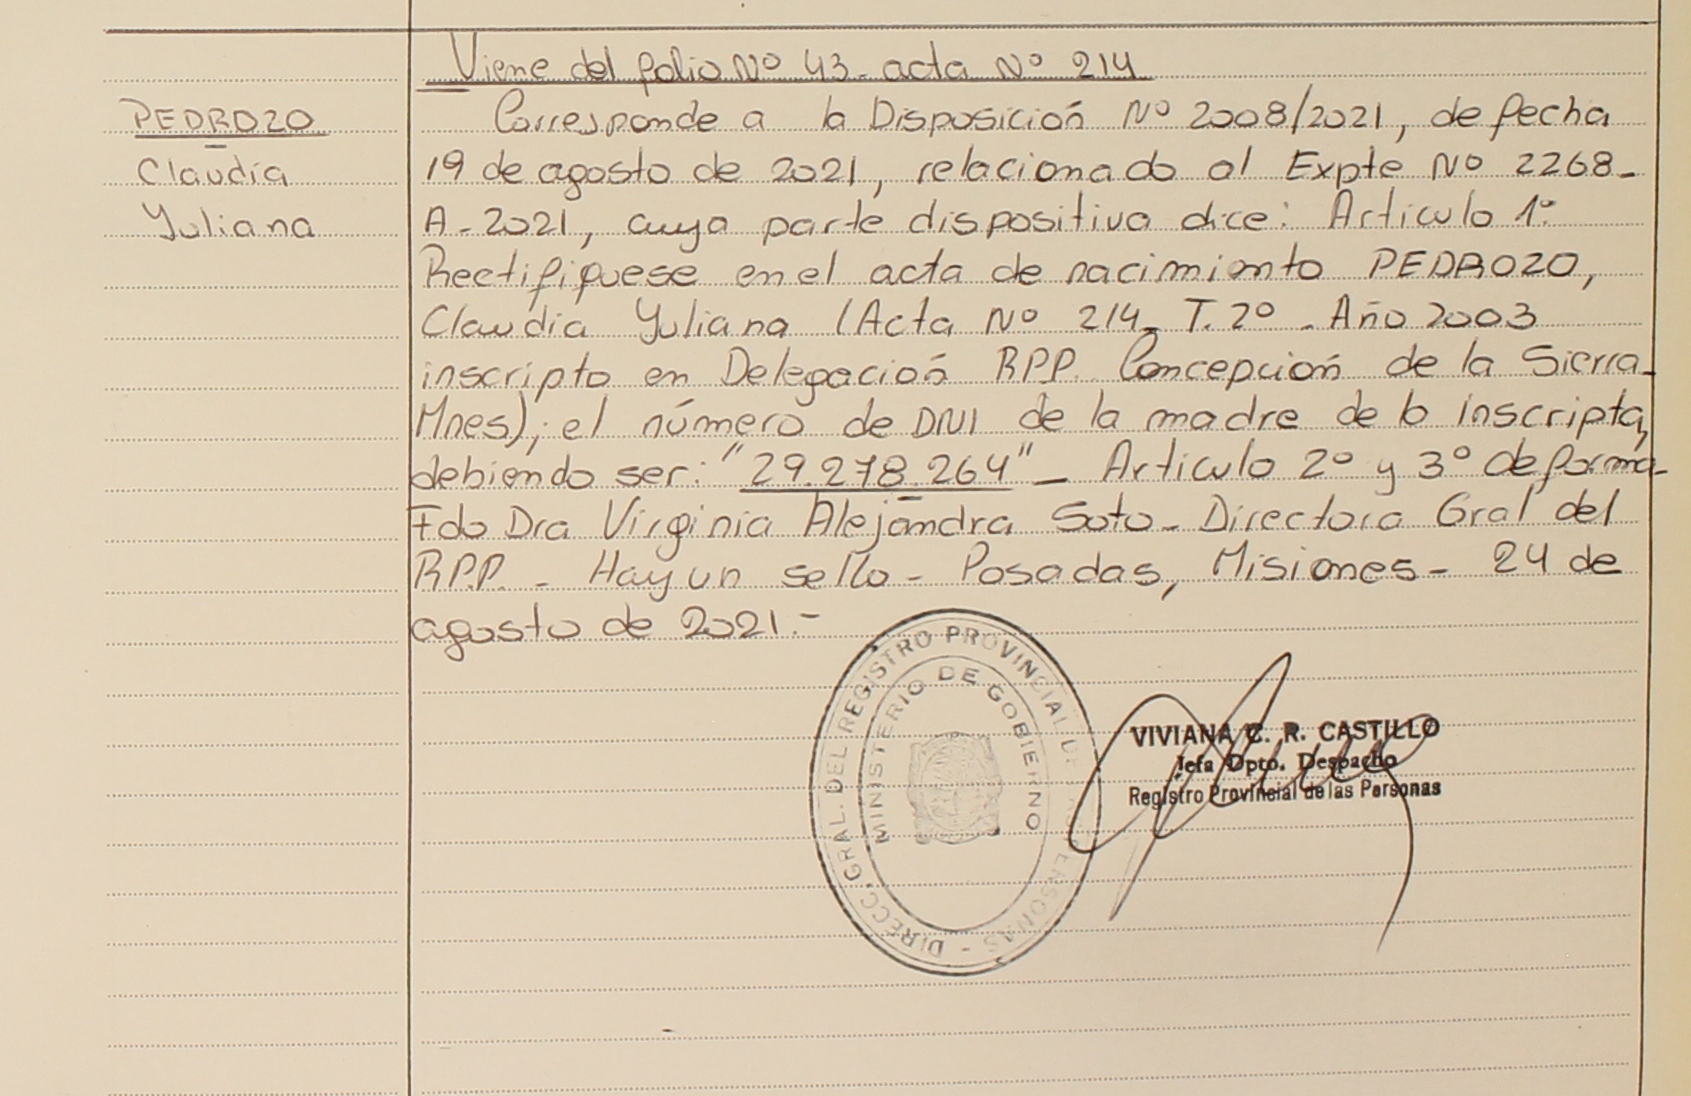 Viene del folio Nº 43. acta Nº 214
PEDROZO
Claudia
Yuliana
Corresponde a la Disposición Nº 2008/2021, de fecha
19 de agosto de 2021, relacionado al Expte Nº 2268-
A-2021, cuya parte dispositiva dice: Artículo 1º:
Rectifiquese en el acta de nacimiento PEDROZO,
Claudia Yuliana (Acta Nº 214_ T. 2º - Año 2003
inscripto en Delegación RPP. Concepción de la Sierra-
Mnes), el número de DNI de la madre de la inscripta,
debiendo ser: "29.278.264" - Artículo 2º y 3º de forma-
Fdo Dra Virginia Alejandra Soto - Directora Gral del
RP.P. - Hay un sello - Posadas, Misiones - 24 de
agosto de 2021.-
DIRECC. GRAL. DEL REGISTRO PROVINCIAL DE LAS PERSONAS -
MINISTERIO DE GOBIERNO
VIVIANA C. R. CASTILLO
Jefa Dpto. Despacho
Registro Provincial de las Personas